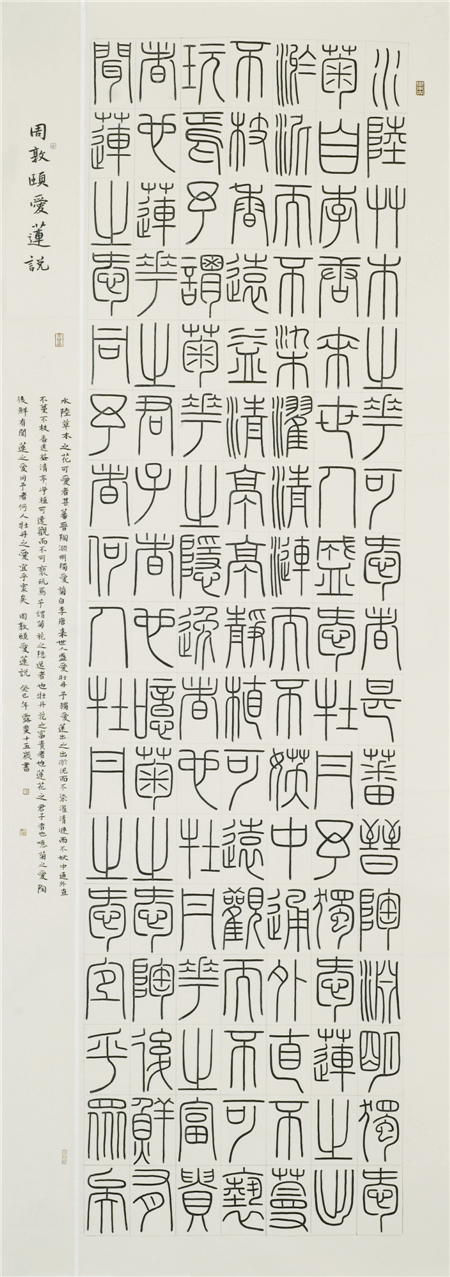 水陸艸木之華可愛者甚蕃晉陶淵明獨愛
菊自李唐來世人盛愛牡丹予獨愛蓮之出
淤泥而不染濯清漣而不妖中通外直不蔓
不枝香遠益清亭亭靜植可遠觀而不可褻
玩焉予謂菊華之隱逸者也牡丹華之富貴
者也蓮華之君子者也噫菊之愛陶後鮮有
聞蓮之愛同予者何人牡丹之愛宜乎眾矣
周敦頤愛蓮說
水陸草木之花可愛者甚蕃晉陶淵明獨愛菊自李唐來世人盛愛牡丹予獨愛蓮出之出淤泥而不染濯清漣而不妖中通外直
不蔓不枝香遠益清亭淨植可遠觀而不可褻玩焉予謂菊花之隱逸者也牡丹花之富貴者也蓮花之君子者也噫菊之愛陶
後鮮有聞蓮之愛同予者何人牡丹之愛宜乎眾矣 周敦頤愛蓮說 癸巳年 露斐十五歲書